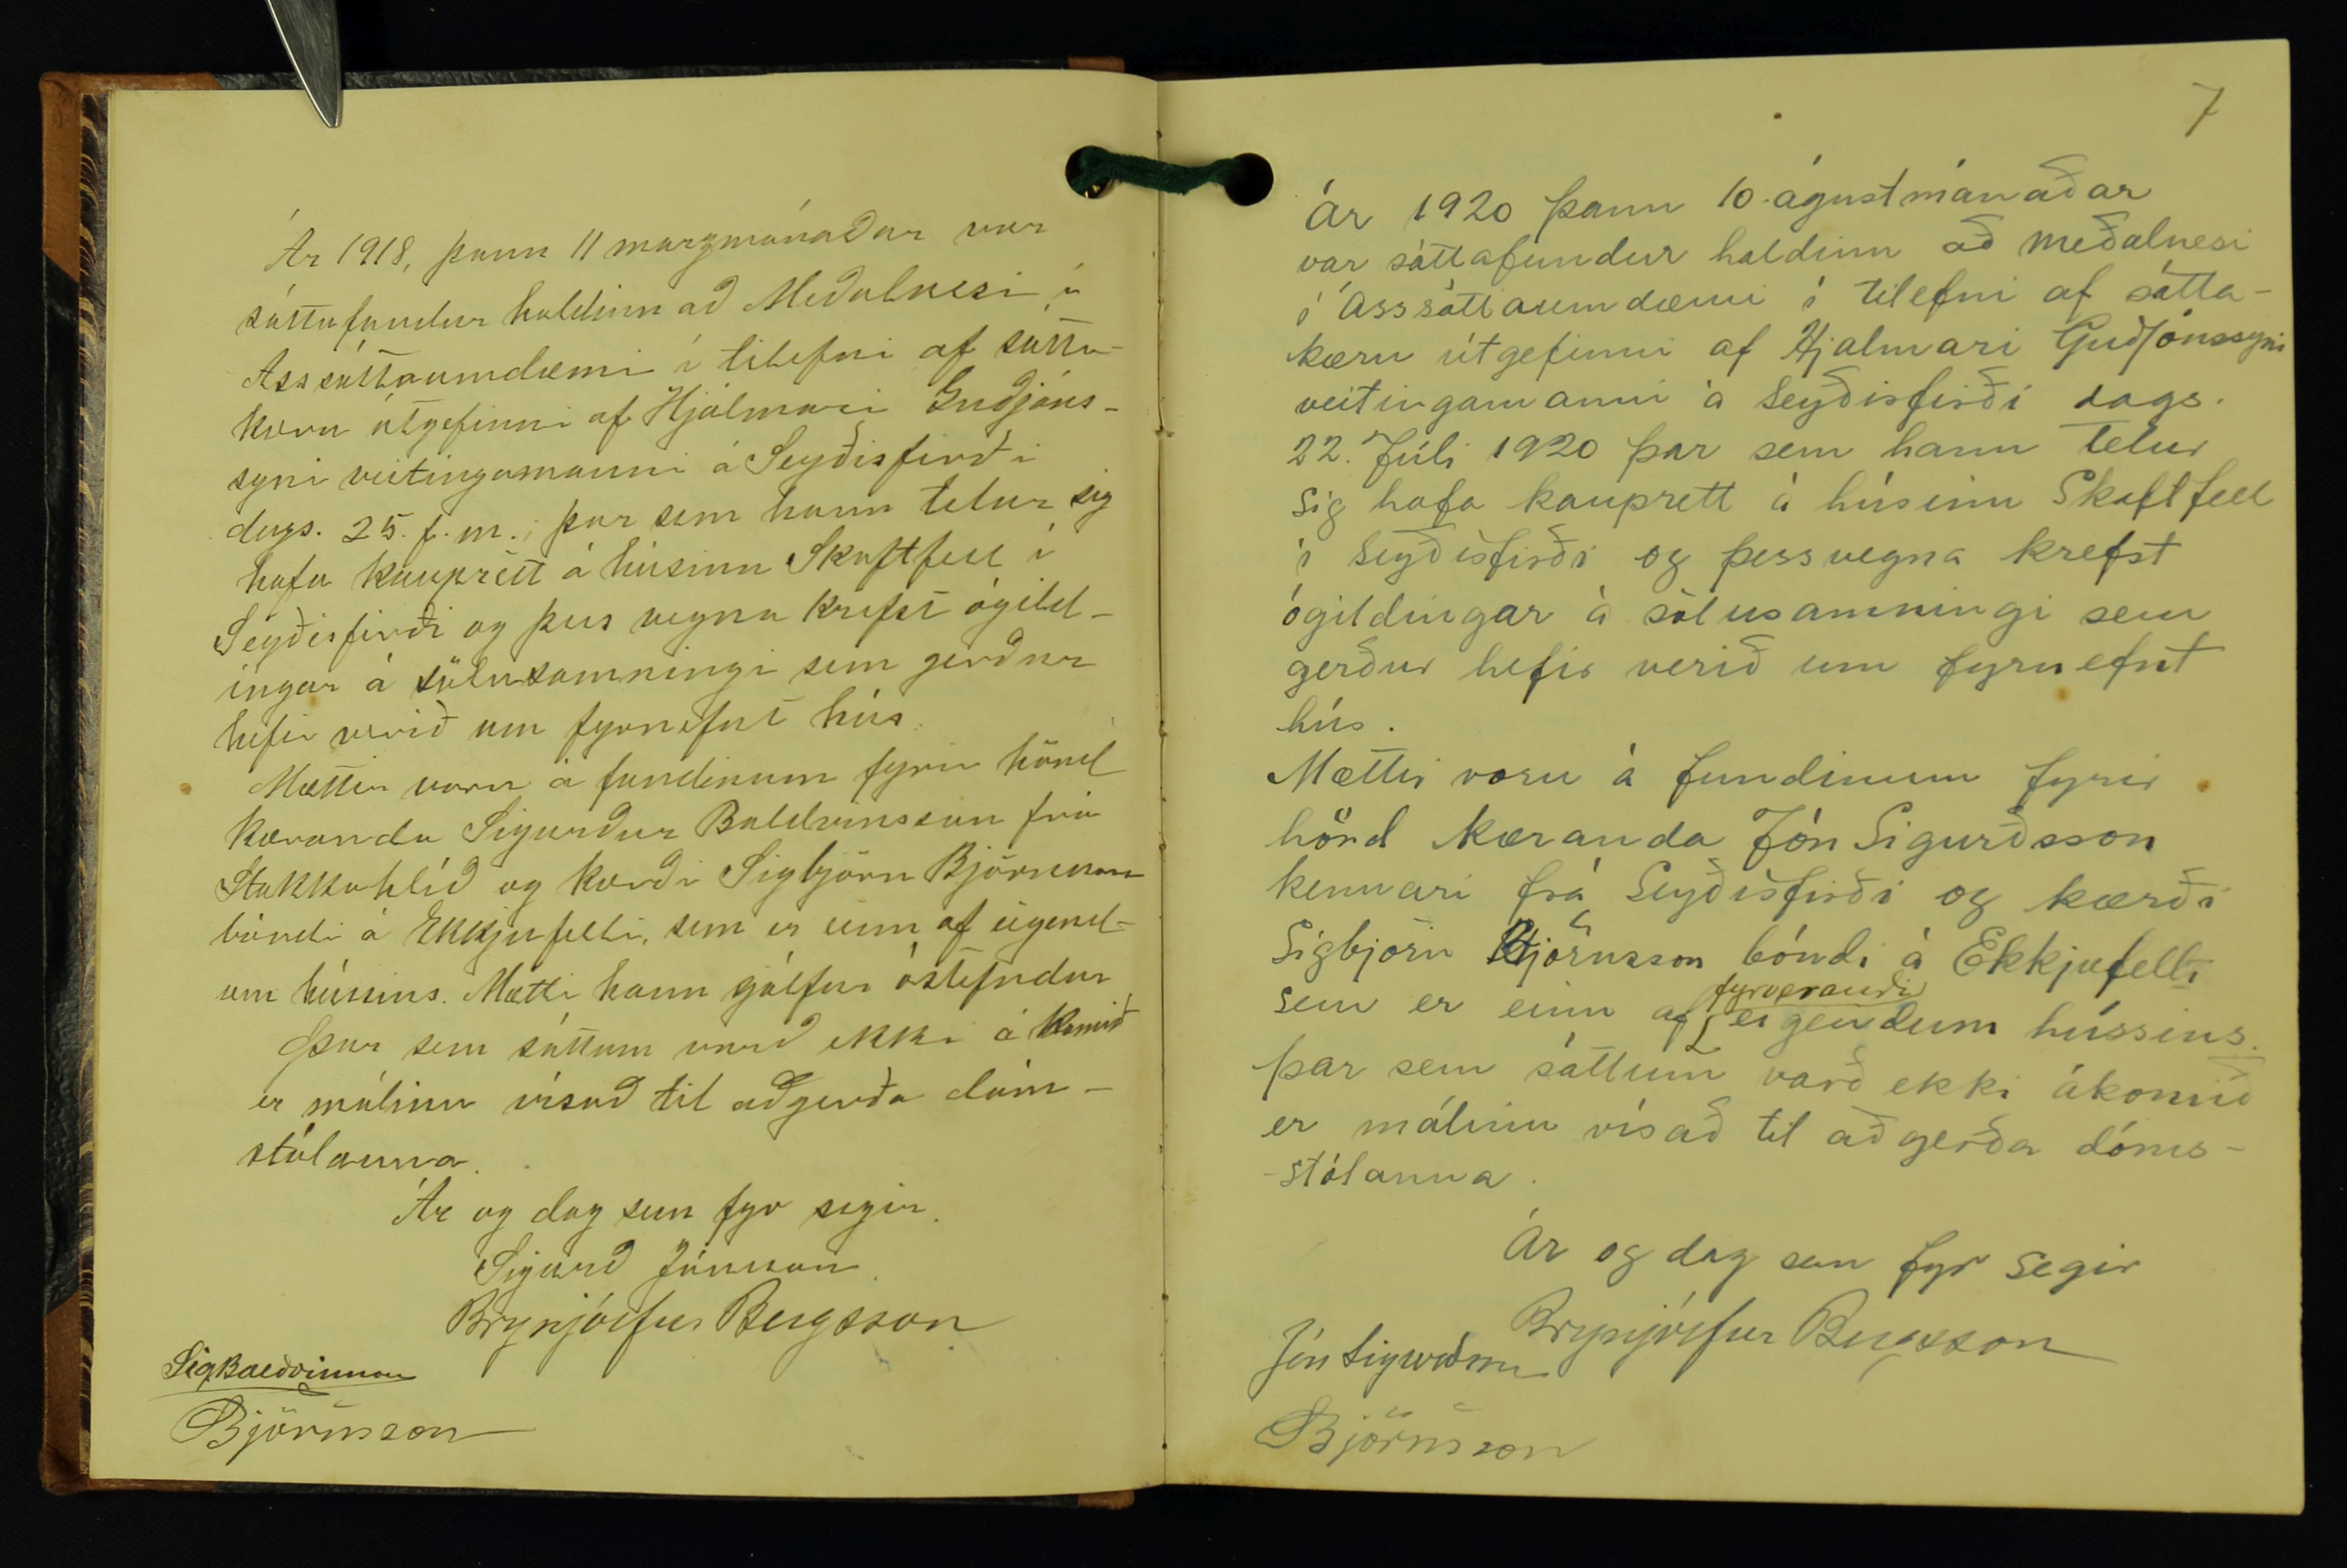 Ár 1918, þann 11 marzmánaðar var
sáttafundur haldinn að Meðalnesi, í
Ássáttaumdæmi í tilefni af sátta-
kæru útgefinni af Hjálmari Guðjóns-
syni veitingamanni á Seyðisfirði
dags. 25. f. m., þar sem hann telur sig
hafa kauprétt á húsinu Skaftfell í
Seyðisfirði og þess vegna krefst ógild-
ingar á sölusamningi sem gerður
hefir verið um fyrnefnt hús.
Mættir voru á fundinum fyrir hönd
kæranda Sigurður Baldvinsson frá
Stakkahlíð og kærði Sigbjörn Björnsson
bóndi á Ekkjufelli, sem er einn af eigend-
um hússins. Mætti hann sjálfur óstefndur
Þar sem sáttum varð ekki á komið
er málinu vísað til aðgerða dóm-
stólanna.
Ár og dag sem fyr segir.
Sigurð Jónsson.
Brynjólfur Bergsson
Sig Baldvinsson
Björnsson
7
Ár 1920 þann 10. ágústmánaðar
var sáttafundur haldinn að Meðalnesi
í Ássáttaumdæmi í tilefni af sátta-
kæru útgefinni af Hjalmari Guðjónssyni
veitingamanni á Seyðisfirði dags.
22. Júli 1920 þar sem hann telur
sig hafa kauprett á húsinu Skaftfell
í Seyðisfirði og þessvegna krefst
ógildingar á sölusamningi sem
gerður hefir verið um fyrnefnt
hús.
Mættir voru á fundinum fyrir
hönd kæranda Jón Sigurðsson
kennari frá Seyðisfirði og kærði
Sigbjörn Björnsson bóndi á Ekkjufelli
sem er einn af fyrverandi eigendum hússins.
þar sem sáttum varð ekki ákomið
er málinu vísað til aðgerða dóms-
-stólanna.
Ár og dag sem fyr segir
Brynjólfur Bergsson
Jón Sigurðsson
Björnsson